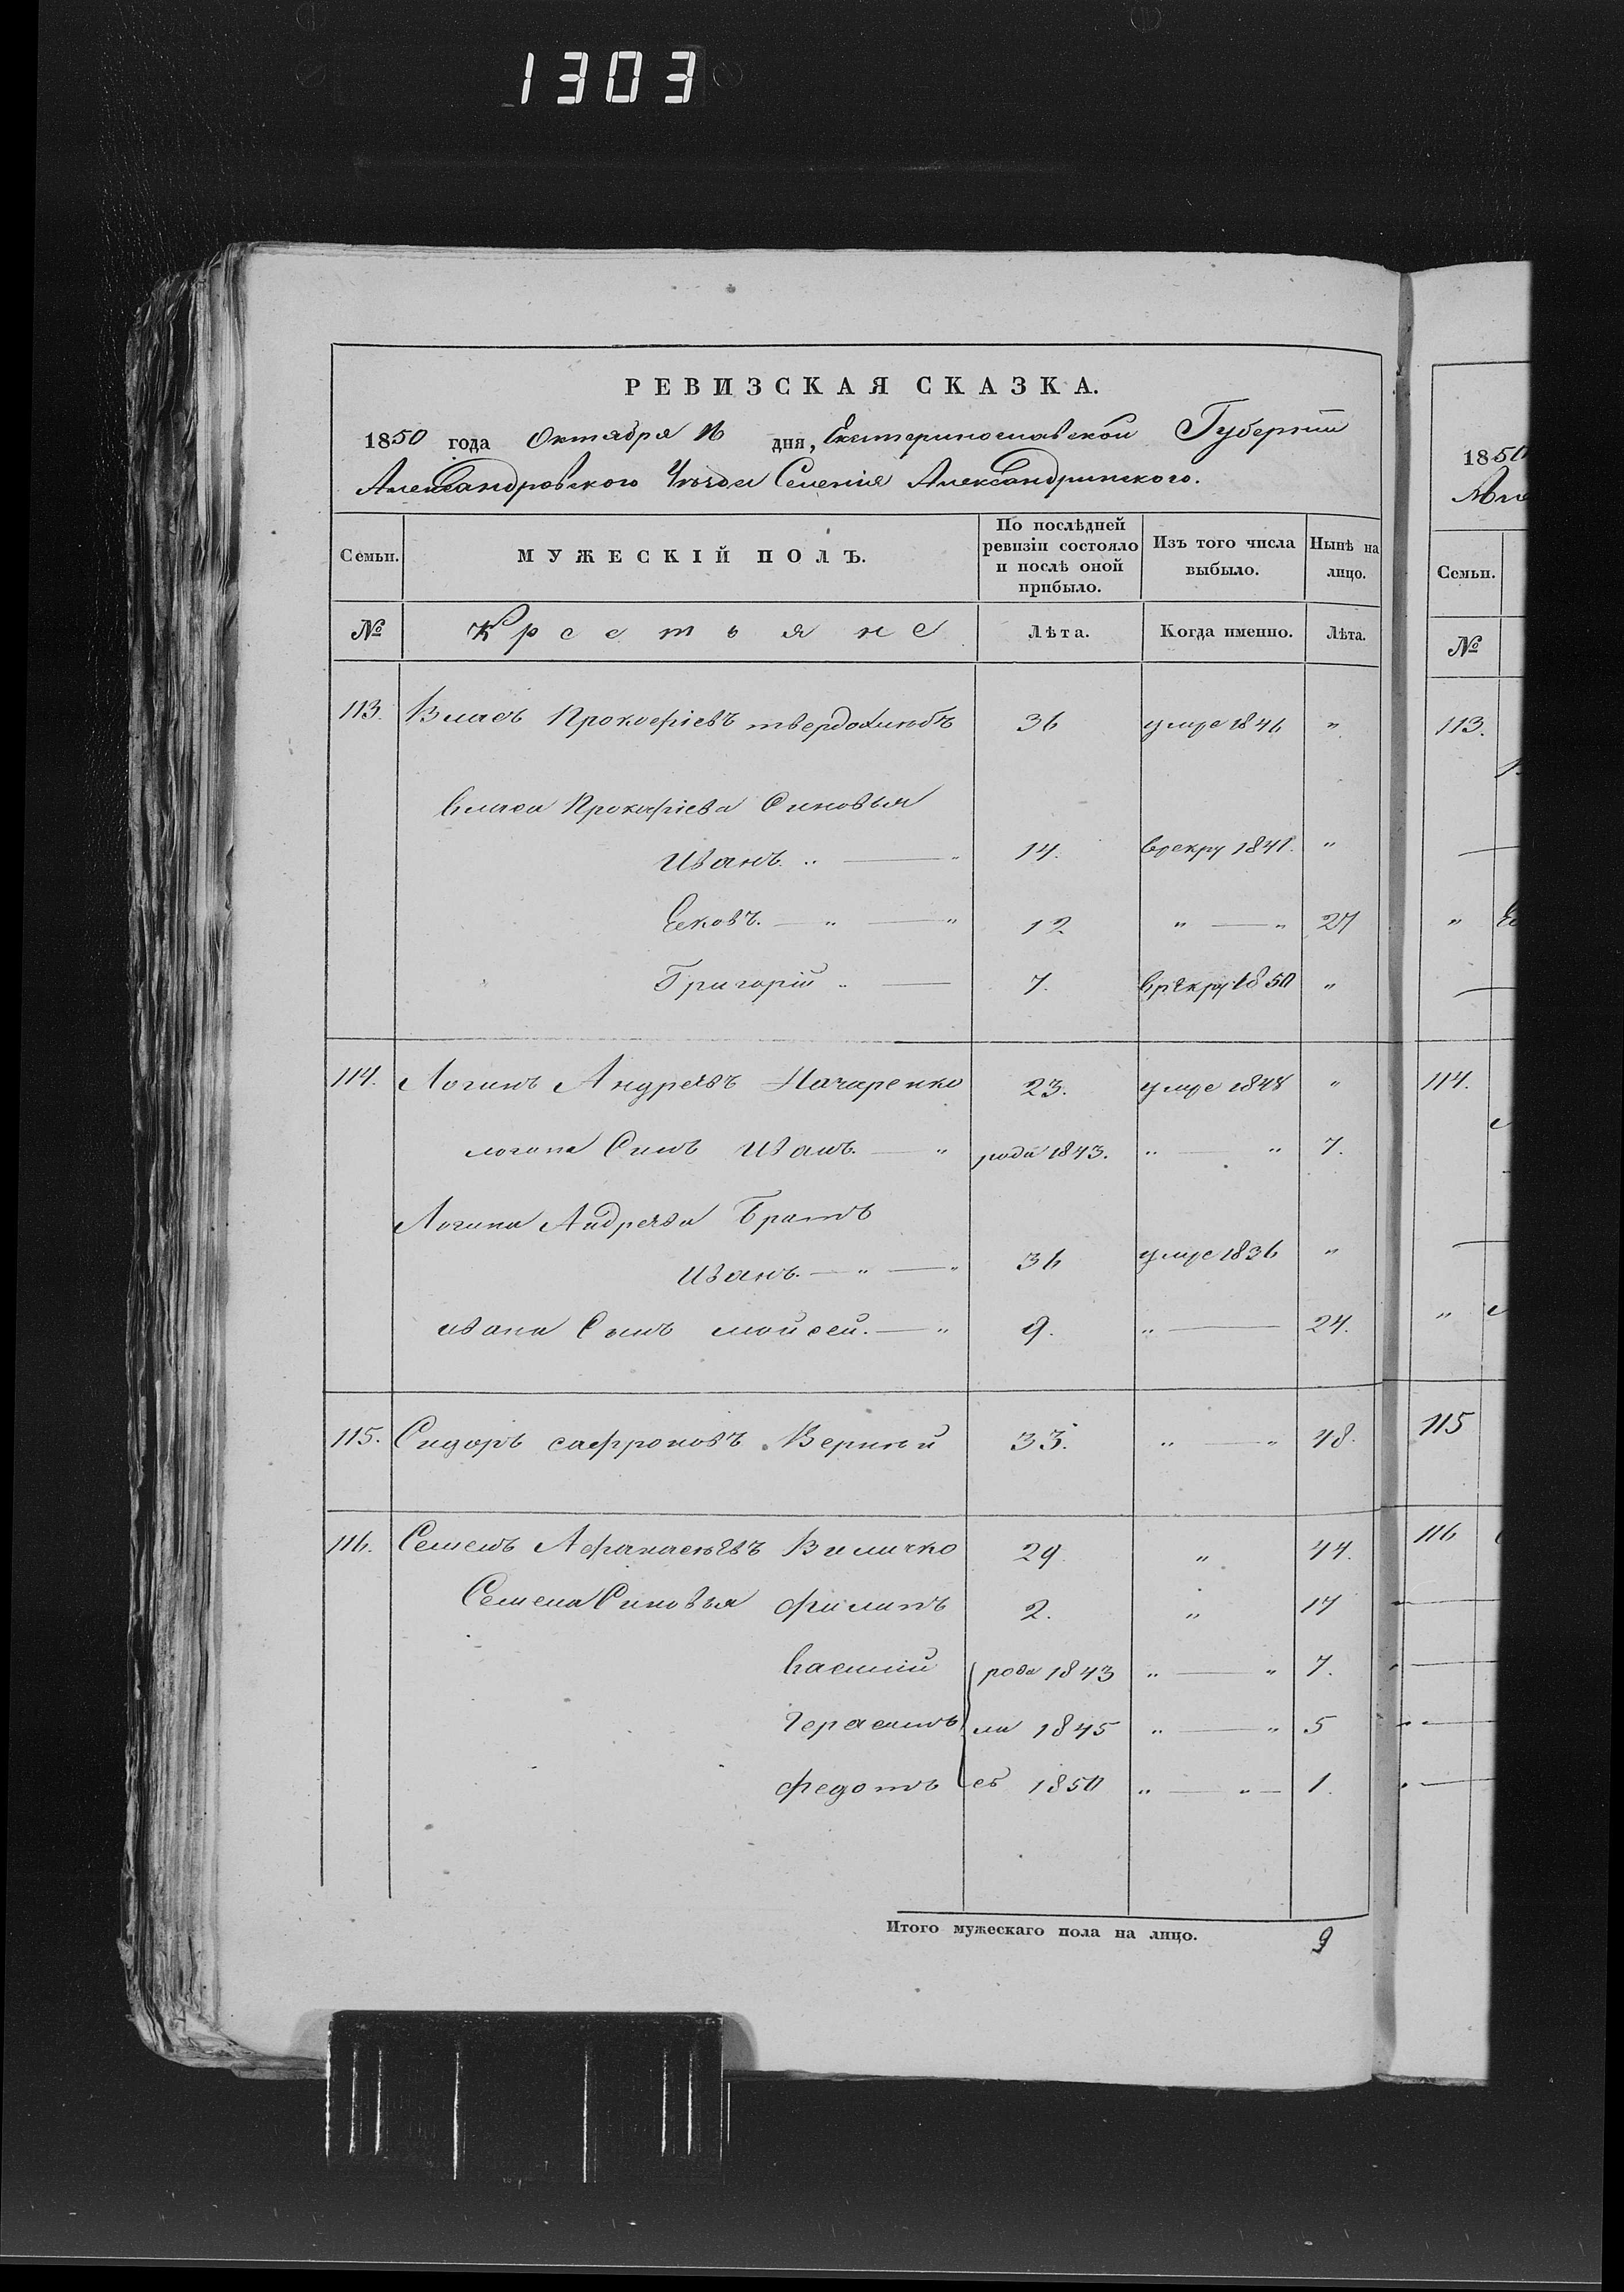 1303
РЕВИЗСКАЯ СКАЗКА.
1850 года Октября 16 дня, Екатеринославской Губернiи
Александровского Уѣзда Селенiя Александринского.
Семьи. МУЖЕСКIЙ ПОЛЪ. По послѣдней ревизiи состояло и послѣ оной прибыло. Изъ того числа выбыло. Нынѣ на лицо.
№ Крестьяне Лѣта. Когда именно. Лѣта.
113. Власъ Прокофiевъ твердохлѣбъ 36 умре 1846 "
Власа Прокофiева Синовья
Иванъ. " — " 14. врекру 1841. "
Есковъ. — " — " 12 " — " 27
Григорiй " — 7. врекру 1850 "
114. Логинъ Андреевъ Назаренко 23. умре 1848 "
логина Синъ Иванъ. — " роди 1843. " — " 7.
Логина Андреева Братъ
Иванъ. — " — " 36 умре 1836 "
ивана Сынъ мойсей. — " 9. " — 24.
115. Сидоръ сафроновъ Верный 33. " — " 48.
116. Семенъ Афанасьевъ Виличко 29 " 44.
Семена Синовья филипъ 2. " 17
Василiй роди 1843 " — " 7.
Герасимъ ли 1845 " — " 5
федотъ сь 1850 " — " — 1.
Итого мужескаго пола на лицо. 9
1850
Семьи.
№
113.
"
114.
"
115
116